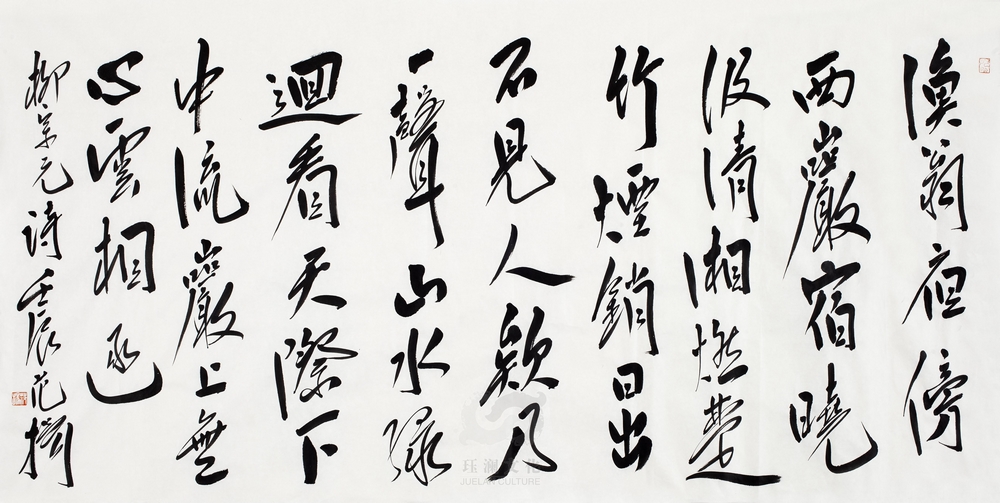 漁翁夜傍
西巖宿曉
汲清湘燃楚
竹煙銷日出
不見人欸乃
一聲山水綠
迴看天際下
中流巖上無
心雲相逐
柳宗元詩壬辰范揚
珏澜文化
JUELAN CULTURE